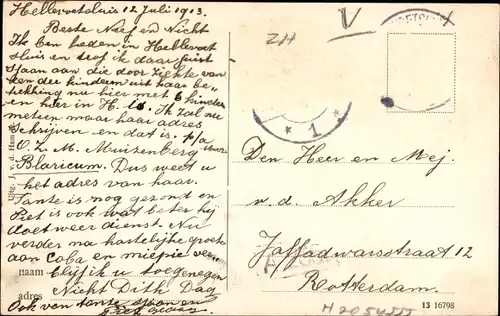 Hellevoetsluis 12 Juli 1913.
Beste Neef en Nicht
Ik ben heden in Hellevoet
sluis en trof ik daar juist
Sjaan aan die door ziekte van
een der kinderen uit haar be„
trekking nu hier met 6 kinder
en hier in H. is. Ik zal nu
meteen maar haar adres
Schrijven en dat is. p/a
O. Z. M. Muizenberg
Blaricum. Dus weet u
het adres van haar.
Tante is nog gezond en
Piet is ook wat beter hij
doet weer dienst. Nu
verder na hartelijke groet
aan Coba en miepie ver„
naam blijf ik u toegenegen
Nicht Dith Dag
adres
Ook van tante Sjaan en
Piet gedaan.
Uitg. J. v. d. Ham
ZH
V
1
Den Heer en Mej.
v. d. Akker
Jaffadwarsstraat 12
Rotterdam.
H 2054555
13 16798